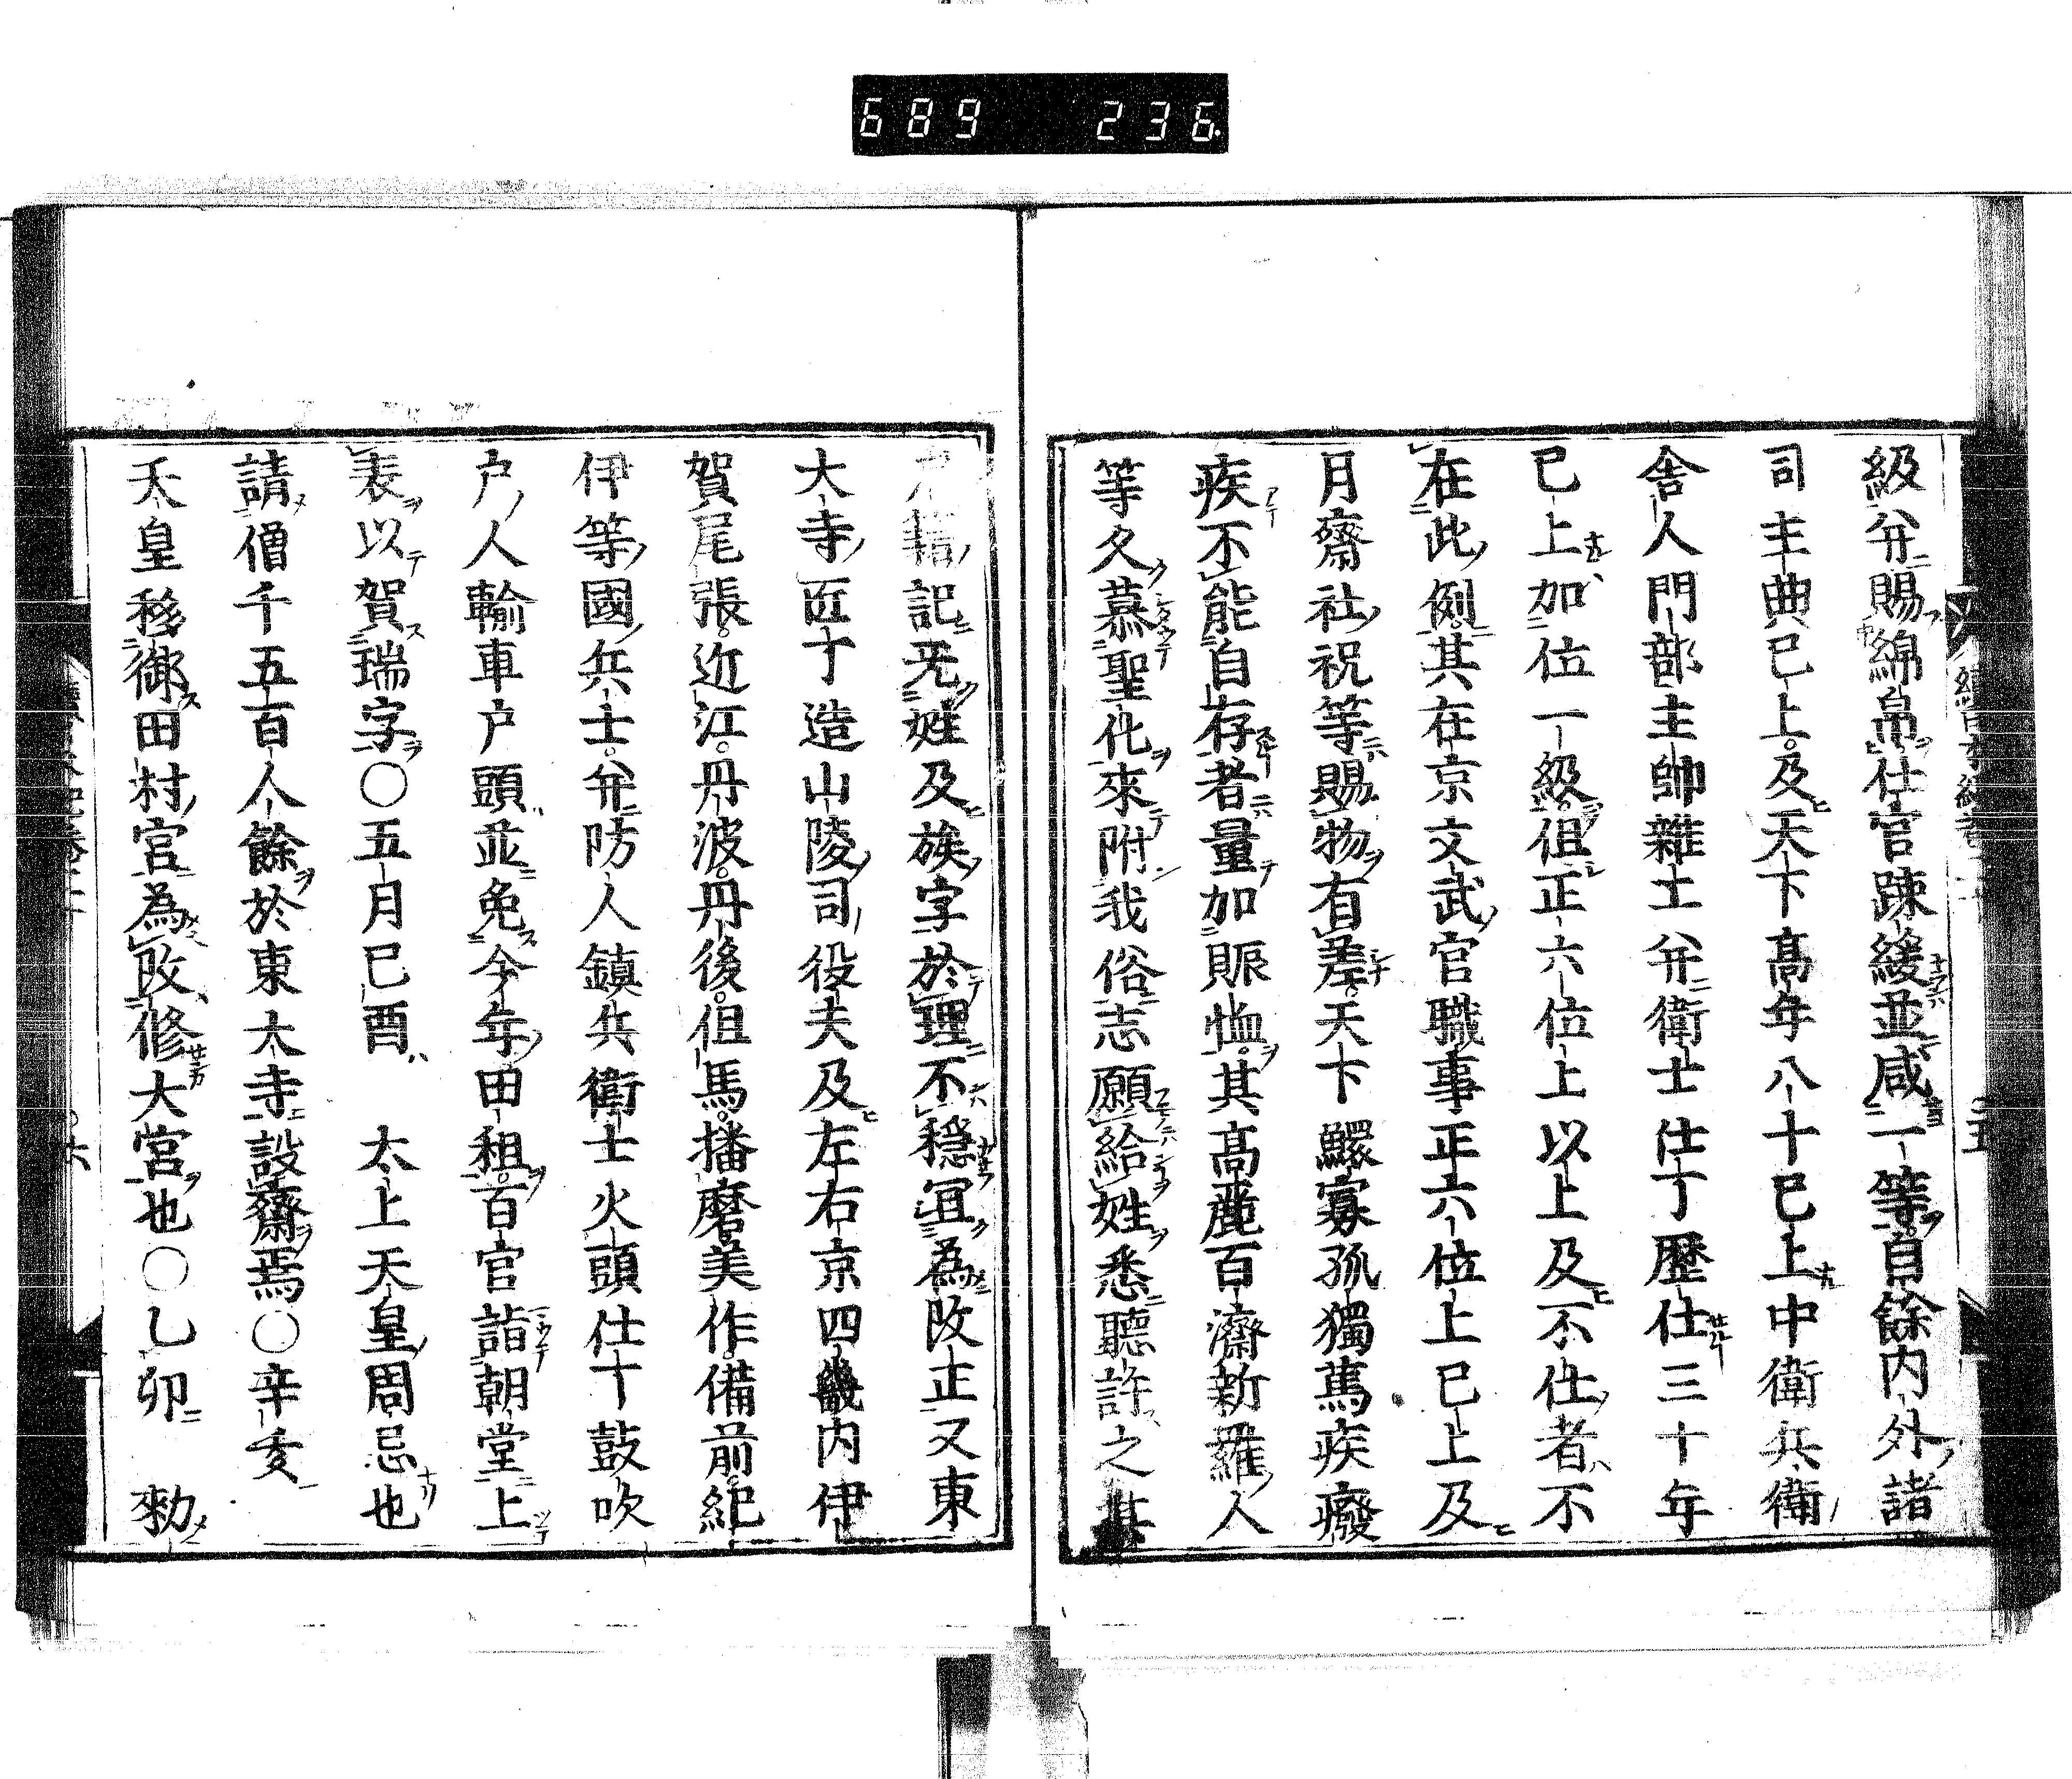 689 236
級并賜綿帛仕官踈緩並咸二等自餘内外諸
司主典已上及天下高年八十已上中衛兵衛
舎人門部主帥雜工并衛士仕丁歴仕三十年
已上加位一級但正六位上以上及不仕者不
在此例其在京文武官職事正六位上已上及
月齋社祝等賜物有差天下鰥寡孤獨篤疾癈
疾不能自存者量加賑恤其高麗百濟新羅人
等久慕聖化來附我俗志願給姓悉聽許之其
戸籍記无姓及族字於理不穏冝為改正又東
大寺匠丁造山陵司役夫及左右京四畿内伊
賀尾張近江丹波丹後但馬播磨美作備前紀
伊等國兵士并防人鎮兵衛士火頭仕丁鼓吹
户人輸車户頭並免今年田租百官詣朝堂上
表以賀瑞字〇五月已酉 太上天皇周忌也
請僧千五百人餘於東大寺設齋焉〇辛亥
天皇移御田村宮為改修大宮也〇乙卯 勅